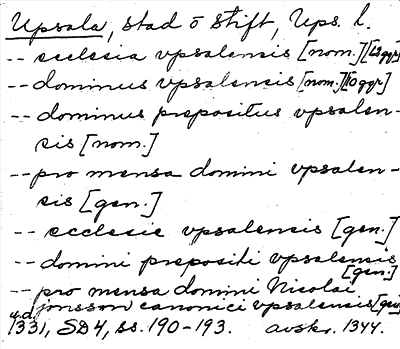 Upsala, stad o stift, Ups. l.
-- ecclesia vpsalensis [nom.] [29ggr]
-- dominus vpsalensis [nom.] [10 ggr]
-- dominus prepositus vpsalen-
sis [nom.]
-- pro mensa domini vpsalen-
sis [gen.]
-- ecclesie vpsalensis [gen.]
-- domini prepositi vpsalensis
[gen.]
-- pro mensa domini Nicolai
jonsson canonici vpsalensis [gen]
u.d. 1331, SD4, ss. 190-193. avskr. 1344.